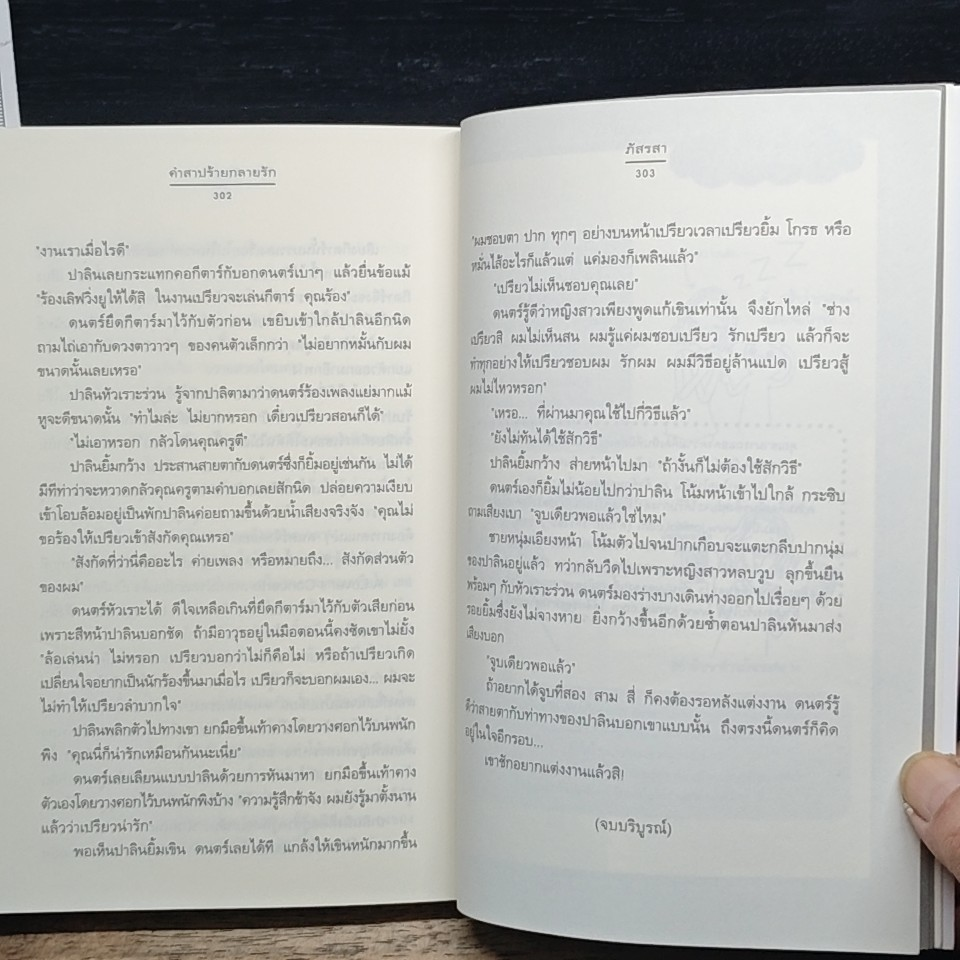 คำสาปร้ายกลายรัก
302
"งานเราเมื่อไรดี"
ปาลินเลยกระแทกคอกีตาร์กับอกดนตร์เบาๆ แล้วยื่นข้อแม้
"ร้องเลิฟวิ่งยูให้ได้สิ ในงานเปรียวจะเล่นกีตาร์ คุณร้อง"
ดนตร์ยึดกีตาร์มาไว้กับตัวก่อน เขยิบเข้าใกล้ปาลินอีกนิด
ถามไถ่เอากับดวงตาวาวๆ ของคนตัวเล็กกว่า "ไม่อยากหมั้นกับผม
ขนาดนั้นเลยเหรอ"
ปาลินหัวเราะร่วน รู้จากปาลิตามาว่าดนตร์ร้องเพลงแย่มากแม้
หูจะดีขนาดนั้น "ทำไมล่ะ ไม่ยากหรอก เดี๋ยวเปรียวสอนก็ได้"
"ไม่เอาหรอก กลัวโดนคุณครูตี"
ปาลินยิ้มกว้าง ประสานสายตากับดนตร์ซึ่งก็ยิ้มอยู่เช่นกัน ไม่ได้
มีทีท่าว่าจะหวาดกลัวคุณครูตามคำบอกเลยสักนิด ปล่อยความเงียบ
เข้าโอบล้อมอยู่เป็นพักปาลินค่อยถามขึ้นด้วยน้ำเสียงจริงจัง "คุณไม่
ขอร้องให้เปรียวเข้าสังกัดคุณเหรอ"
"สังกัดที่ว่านี่คืออะไร ค่ายเพลง หรือหมายถึง... สังกัดส่วนตัว
ของผม"
ดนตร์หัวเราะได้ ดีใจเหลือเกินที่ยึดกีตาร์มาไว้กับตัวเสียก่อน
เพราะสีหน้าปาลินบอกชัด ถ้ามีอาวุธอยู่ในมือตอนนี้คงซัดเขาไม่ยั้ง
"ล้อเล่นน่า ไม่หรอก เปรียวบอกว่าไม่ก็คือไม่ หรือถ้าเปรียวเกิด
เปลี่ยนใจอยากเป็นนักร้องขึ้นมาเมื่อไร เปรียวก็จะบอกผมเอง... ผมจะ
ไม่ทำให้เปรียวลำบากใจ"
ปาลินพลิกตัวไปทางเขา ยกมือขึ้นเท้าคางโดยวางศอกไว้บนพนัก
พิง "คุณนี่ก็น่ารักเหมือนกันนะเนี่ย"
ดนตร์เลยเลียนแบบปาลินด้วยการหันมาหา ยกมือขึ้นเท้าคาง
ตัวเองโดยวางศอกไว้บนพนักพิงบ้าง "ความรู้สึกช้าจัง ผมยังรู้มาตั้งนาน
แล้วว่าเปรียวน่ารัก"
พอเห็นปาลินยิ้มเขิน ดนตร์เลยได้ที แกล้งให้เขินหนักมากขึ้น
ภัสรสา
303
"ผมชอบตา ปาก ทุกๆ อย่างบนหน้าเปรียวเวลาเปรียวยิ้ม โกรธ หรือ
หมั่นไส้อะไรก็แล้วแต่ แค่มองก็เพลินแล้ว"
"เปรียวไม่เห็นชอบคุณเลย"
ดนตร์รู้ดีว่าหญิงสาวเพียงพูดแก้เขินเท่านั้น จึงยักไหล่ "ช่าง
เปรียวสิ ผมไม่เห็นสน ผมรู้แค่ผมชอบเปรียว รักเปรียว แล้วก็จะ
ทำทุกอย่างให้เปรียวชอบผม รักผม ผมมีวิธีอยู่ล้านแปด เปรียวสู้
ผมไม่ไหวหรอก"
"เหรอ... ที่ผ่านมาคุณใช้ไปกี่วิธีแล้ว"
"ยังไม่ทันได้ใช้สักวิธี"
ปาลินยิ้มกว้าง ส่ายหน้าไปมา "ถ้างั้นก็ไม่ต้องใช้สักวิธี"
ดนตร์เองก็ยิ้มไม่น้อยไปกว่าปาลิน โน้มหน้าเข้าไปใกล้ กระซิบ
ถามเสียงเบา "จูบเดียวพอแล้วใช่ไหม"
ชายหนุ่มเอียงหน้า โน้มตัวไปจนปากเกือบจะแตะกลีบปากนุ่ม
ของปาลินอยู่แล้ว ทว่ากลับวืดไปเพราะหญิงสาวหลบวูบ ลุกขึ้นยืน
พร้อมๆ กับหัวเราะร่วน ดนตร์มองร่างบางเดินห่างออกไปเรื่อยๆ ด้วย
รอยยิ้มซึ่งยังไม่จางหาย ยิ่งกว้างขึ้นอีกด้วยซ้ำตอนปาลินหันมาส่ง
เสียงบอก
"จูบเดียวพอแล้ว"
ถ้าอยากได้จูบที่สอง สาม สี่ ก็คงต้องรอหลังแต่งงาน ดนตร์รู้
ดีว่าสายตากับท่าทางของปาลินบอกเขาแบบนั้น ถึงตรงนี้ดนตร์ก็คิด
อยู่ในใจอีกรอบ...
เขาชักอยากแต่งงานแล้วสิ!
(จบบริบูรณ์)